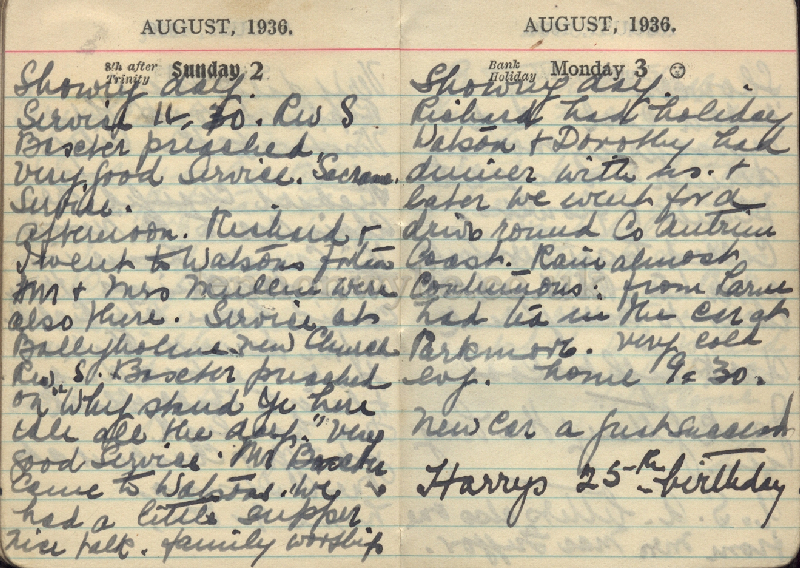 AUGUST, 1936.
8th after Trinity Sunday 2
Showery day.
Service 11-30. Rev S
Baxter preached.
Very good service. Sacram.
Service.
afternoon. Richard +
I went to Watsons for tea
Mr + Mrs Mullen were
also there. Service at
Ballyholme new Church
Rev S. Baxter preached
on "Why stand ye here
idle all the day." Very
good service. Mr Baxter
came to Watsons. We
had a little supper
nice talk. family worship
AUGUST, 1936.
Bank Holiday Monday 3
Showery day.
Richard had holiday
Watson + Dorothy had
dinner with us. +
later we went for a
drive round Co Antrim
Coast. Rain almost
Continuous. from Larne
had tea in the car at
Parkmore. very cold
evg. home 9-30.
New car a great success
Harrys 25th birthday